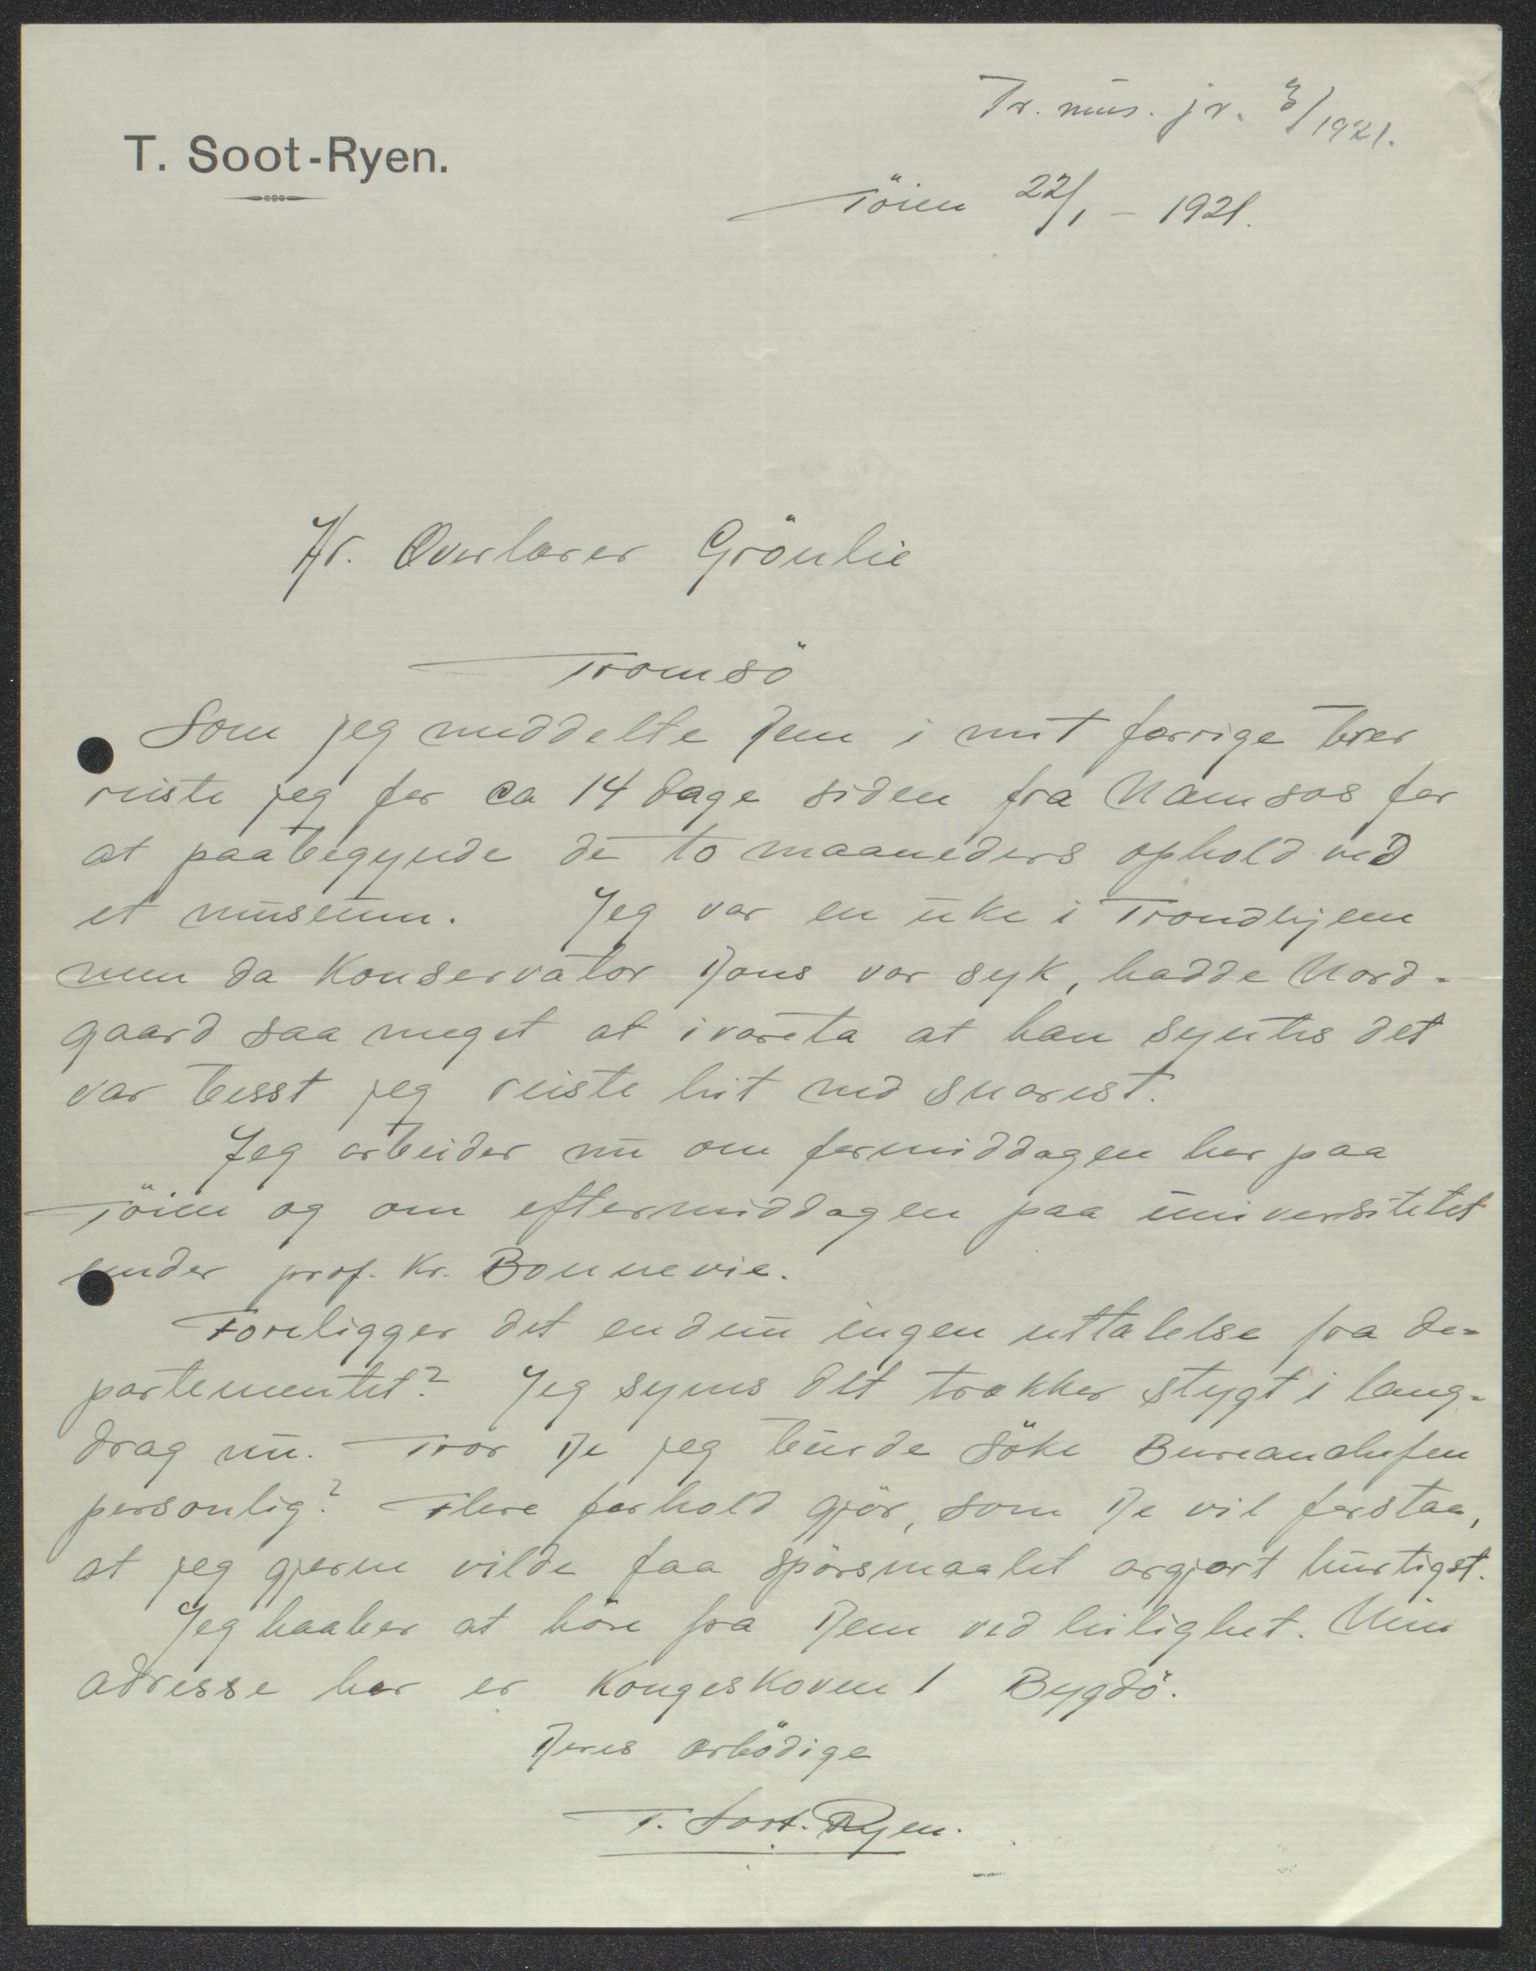 Tr. mus. jr. 3/1921.
T. Soot-Ryen.
Töien 22/1 – 1921.
Hr. Overlærer Grönlie
Tromsö
Som jeg meddelte Dem i mit forrige brev
reiste jeg for ca 14 dage siden fra Namsos for
at paabegynde de to maaneders ophold ved
et museum. Jeg var en uke i Trondhjem
men da Konservator Dons var syk, hadde Nord-
gaard saa meget at ivareta at han syntes det
var besst jeg reiste hit ned snarest.
Jeg arbeider nu om formiddagen her paa
Töien og om eftermiddagen paa universitetet
under prof. Kr. Bonnevie.
Foreligger det endnu ingen uttalelse fra de-
partementet? Jeg synes det trækker stygt i lang-
drag nu. Tror De jeg burde söke Bureauchefen
personlig? Flere forhold gjör, som De vil forstaa,
at jeg gjerne vilde faa spörsmaalet avgjort hurtigst.
Jeg haaber at höre fra Dem ved leilighet. Min
adresse her er Kongeskoven 1 Bygdö.
Deres ærbödige
T. Soot-Ryen.